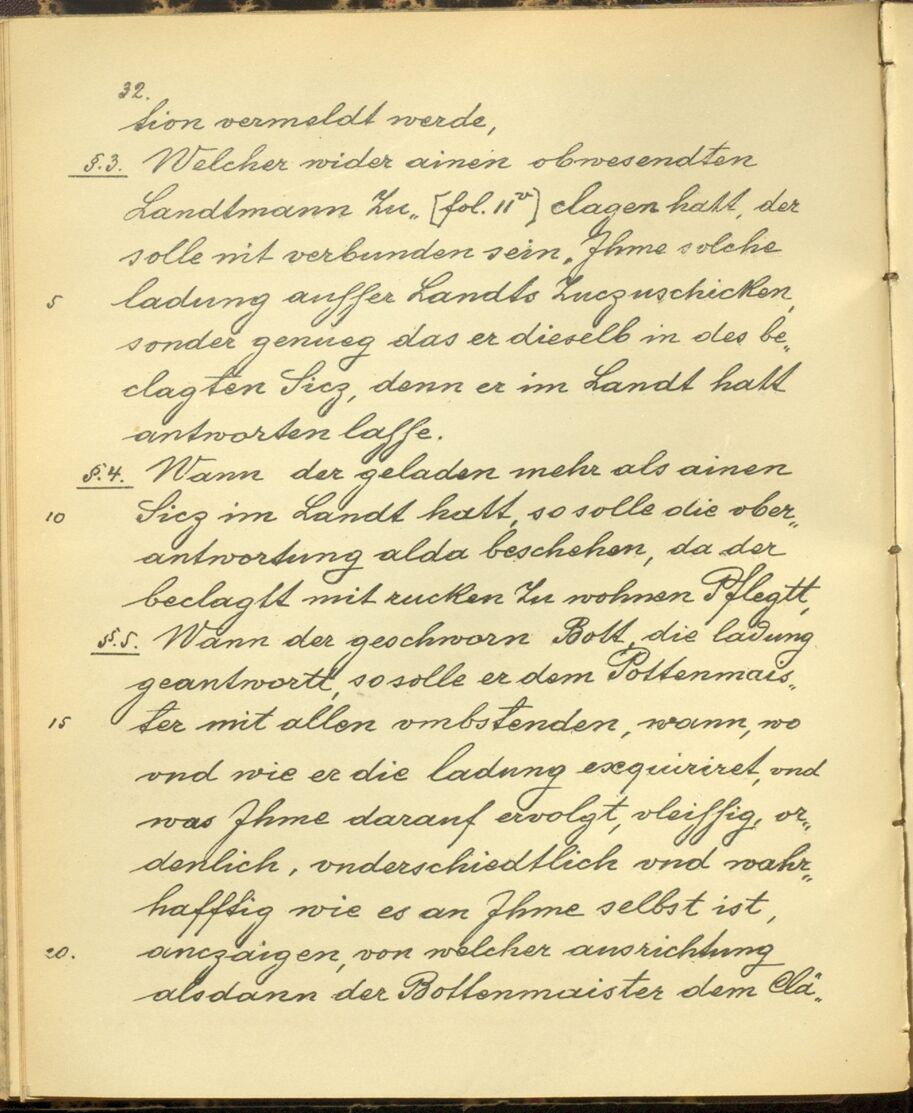 32.
tion vermeldt werde,
§.3. Welcher wider ainen obwesendten
Landtmann Zu„ [fol. 11v] clagen hatt, der
solle nit verbunden sein, Ihme solche
5 ladung ausser Landts Zuczuschicken,
sonder genueg das er dieselb in des be„
clagten Sicz, denn er im Landt hatt
antworten lasse.
§.4. Wann der geladen mehr als ainen
10 Sicz im Landt hatt, so solle die vber„
antwortung alda beschehen, da der
beclagtt mit rucken Zu wohnen Pflegtt,
§.5. Wann der geschworn Bott, die ladung
geantwortt, so solle er dem Pottenmais„
15 ter mit allen vmbstenden, wann, wo
vnd wie er die ladung exquiriret, vnd
was Ihme darauf ervolgt, vleissig, or„
denlich, vnderschiedtlich vnd wahr„
hafftig wie es an Ihme selbst ist,
20. anczaigen, von welcher ausrichtung
alsdann der Bottenmaister dem Clä„